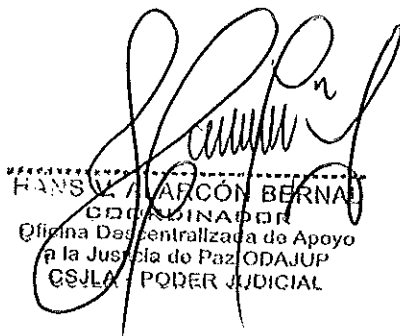 HANS V. ALARCÓN BERNAL
COORDINADOR
Oficina Descentralizada de Apoyo
a la Justicia de Paz ODAJUP
CSJLA - PODER JUDICIAL